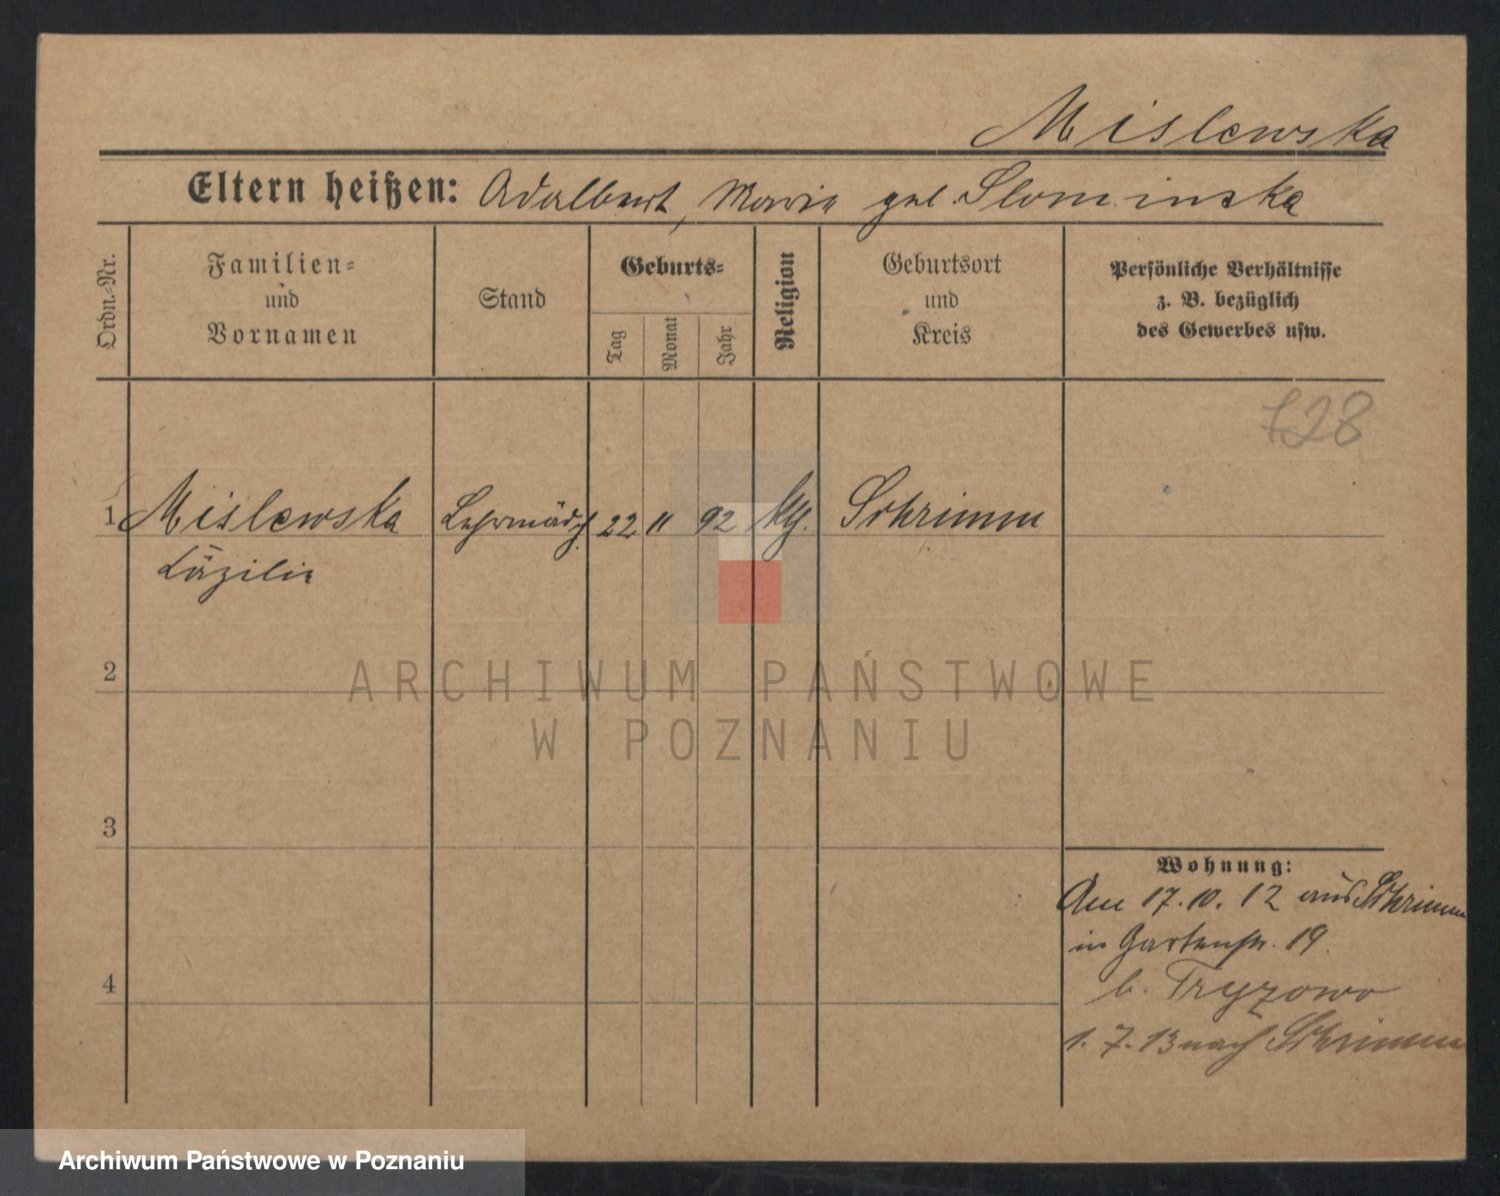 Mislewska
Eltern heißen: Adalbert, Marie geb. Slominska
Ordn.=Nr.
Familien=
und
Vornamen
Stand
Geburts=
Tag
Monat
Jahr
Religion
Geburtsort
und
Kreis
Persönliche Verhältnisse
z. B. bezüglich
des Gewerbes usw.
728
1 Mislewska Lehrmädch. 22 11 92 kth. Schrimm
Cäzilie
2
3
4
Wohnung:
Am 17.10.12 aus Schrimm
in Gartenstr. 19.
b. Tryzowo
1.7.13 nach Schrimm
ARCHIWUM PAŃSTWOWE
W POZNANIU
Archiwum Państwowe w Poznaniu